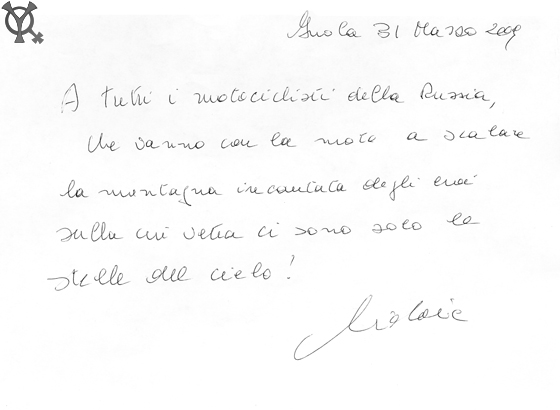 Imola 31 Marzo 2009
A tutti i motociclisti della Russia,
che vanno con la moto a scalare
la montagna incantata degli eroi
sulla cui vetta ci sono solo le
stelle del cielo!